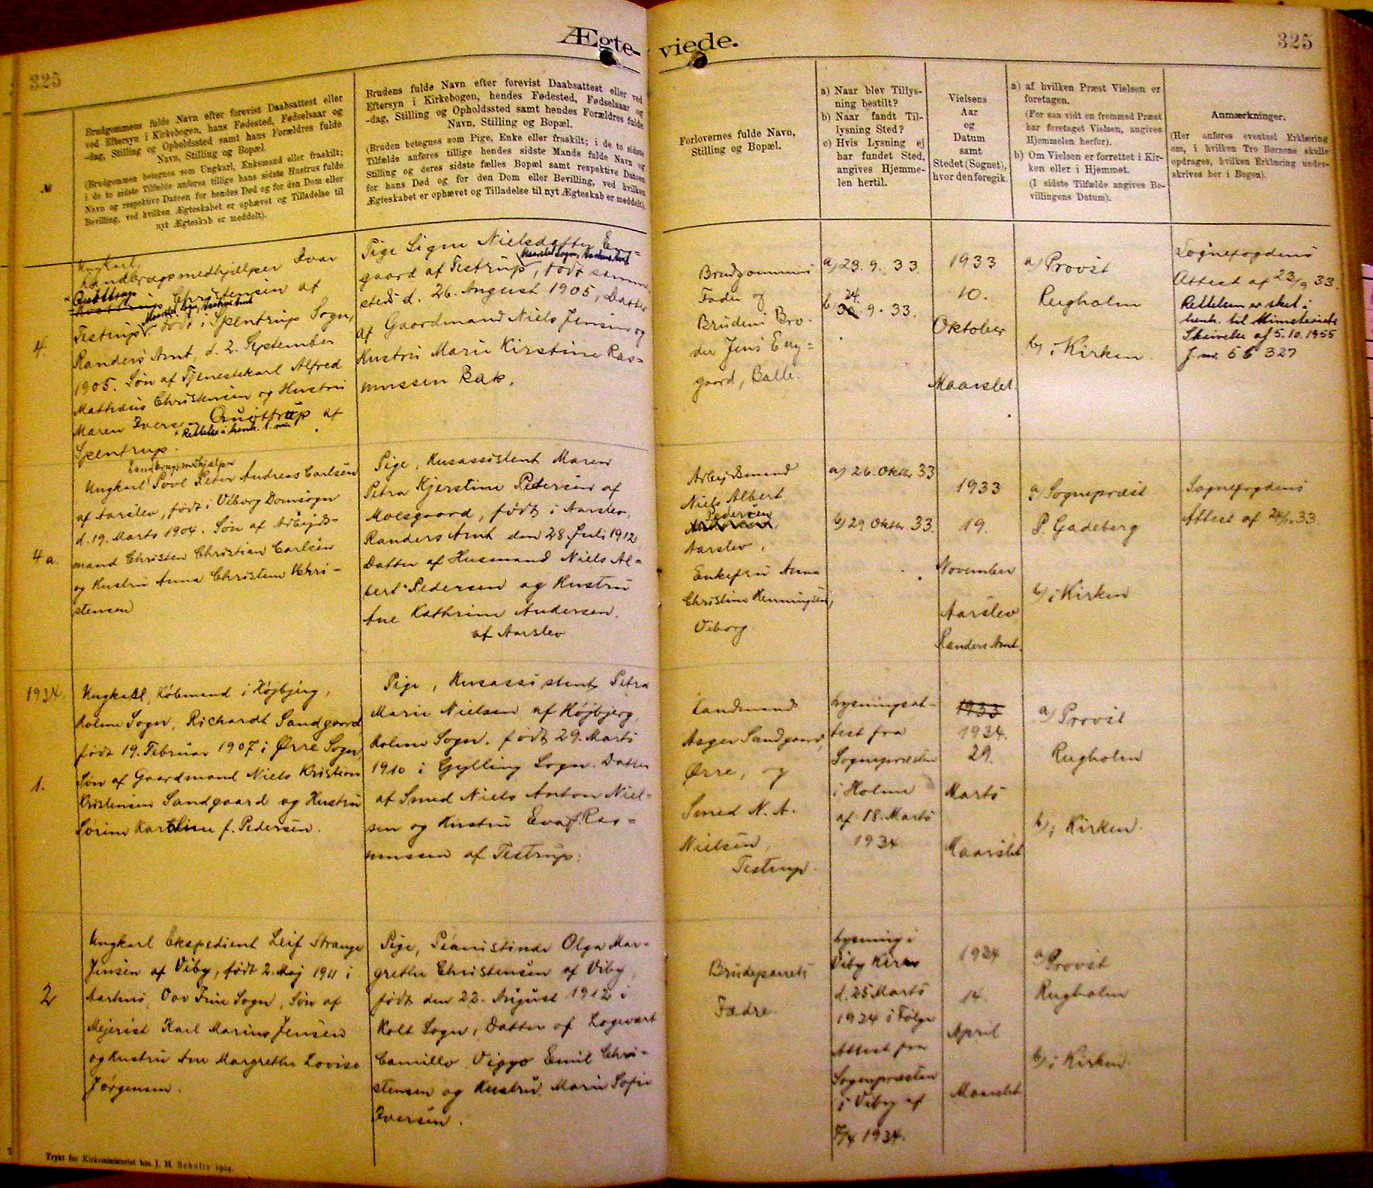 Ægte-viede.
325
325
Brudgommens fulde Navn efter forevist Daabsattest eller
ved Eftersyn i Kirkebogen, hans Fødested, Fødselsaar og
-dag, Stilling og Opholdssted samt hans Forældres fulde
Navn, Stilling og Bopæl.
(Brudgommen betegnes som Ungkarl, Enkemand eller fraskilt;
i de to sidste Tilfælde anføres tillige hans sidste Hustrus fulde
Navn og respektive Datoen for hendes Død og for den Dom eller
Bevilling, ved hvilken Ægteskabet er ophævet og Tilladelse til
nyt Ægteskab er meddelt).
Brudens fulde Navn efter forevist Daabsattest eller ved
Eftersyn i Kirkebogen, hendes Fødested, Fødselsaar og
-dag, Stilling og Opholdssted samt hendes Forældres fulde
Navn, Stilling og Bopæl.
(Bruden betegnes som Pige, Enke eller fraskilt; i de to sidste
Tilfælde anføres tillige hendes sidste Mands fulde Navn og
Stilling og deres sidste fælles Bopæl samt respektive Datoen
for hans Død og for den Dom eller Bevilling, ved hvilken
Ægteskabet er ophævet og Tilladelse til nyt Ægteskab er meddelt).
Forlovernes fulde Navn,
Stilling og Bopæl.
a) Naar blev Tillys-
ning bestilt?
b) Naar fandt Til-
lysning Sted?
c) Hvis Lysning ej
har fundet Sted,
angives Hjemme-
len hertil.
Vielsens
Aar
og
Datum
samt
Stedet (Sognet),
hvor den foregik.
a) af hvilken Præst Vielsen er
foretagen.
(For saa vidt en fremmed Præst
har foretaget Vielsen, angives
Hjemmelen herfor).
b) Om Vielsen er forrettet i Kir-
ken eller i Hjemmet.
(I sidste Tilfælde angives Be-
villingens Datum).
Anmærkninger.
(Her anføres eventuel Erklæring
om, i hvilken Tro Børnene skulle
opdrages, hvilken Erklæring under-
skrives her i Bogen).
4.
Ungkarl,
Landbrugsmedhjælper Ivar
Christensen af
Testrup, født i Spentrup Sogn,
Randers Amt, d. 2. September
1905. Søn af Tjenestekarl Alfred
Mathæus Christensen og Hustru
Maren Iversen Qusttrup af
Spentrup.
Pige Signe Nielsdatter En-
gaard af Testrup, født samme
sted d. 26. August 1905, Datter
af Gaardmand Niels Jensen og
Hustru Marie Kirstine Ras-
mussen Rak.
Brudgommens
Fader og
Brudens Bro-
der Jens Eng-
gaard, Balle.
a) 23. 9. 33.
24.
b. 9. 33.
1933
10.
Oktober
Maarslet
a) Provst
Rugholm
b) i Kirken
Sognefogdens
Attest af 23/9 33.
Rettelsen er sket i
henh. til Ministeriets
Skrivelse af 5.10.1955
J.nr. 55 327
4a.
Landbrugsmedhjælper
Ungkarl Povl Peter Andreas Carlsen
af Aarslev, født i Viborg Domsogn
d. 19. Marts 1904. Søn af Arbejds-
mand Christen Christian Carlsen
og Hustru Anna Christine Chri-
stensen
Pige, Husassistent Maren
Petra Kjerstine Petersen af
Moesgaard, født i Aarslev,
Randers Amt den 28. Juli 1912
Datter af Husmand Niels Al-
bert Pedersen og Hustru
Ane Kathrine Andersen.
af Aarslev
Arbejdsmand
Niels Albert
Pedersen
Aarslev.
Enkefru Anna
Christine Henningsen,
Viborg
a) 26. Oktbr. 33
b) 29. Oktbr. 33.
1933
19.
November
Aarslev
Randers Amt.
a) Sognepræst
P. Gadeberg
b) i Kirken
Sognefogdens
Attest af 33
1934.
1.
Ungkarl, Købmand i Højbjerg,
Holme Sogn, Richardt Sandgaard
født 19. Februar 1907 i Ørre Sogn,
Søn af Gaardmand Niels Kristian
Kristensen Sandgaard og Hustru
Sørine Karoline f. Pedersen.
Pige, Husassistent Petra
Marie Nielsen af Højbjerg,
Holme Sogn, født 29. Marts
1910 i Gylling Sogn. Datter
af Smed Niels Anton Niel-
sen og Hustru Eva f. Ras-
mussen af Testrup.
Landmand
Asger Sandgaard,
Ørre, og
Smed N. A.
Nielsen,
Testrup.
Lysningsat-
test fra
Sognepræsten
i Holme
af 18. Marts
1934.
1933
1934.
29.
Marts
Maarslet
a) Provst
Rugholm
b) i Kirken.
2
Ungkarl Ekspedient Leif Strange
Jensen af Viby, født 2. Maj 1911 i
Aarhus, Vor Frue Sogn, Søn af
Mejerist Karl Marius Jensen
og Hustru Ane Margrethe Lovise
Jørgensen.
Pige, Pianistinde Olga Mar-
grethe Christensen af Viby,
født den 22. August 1912 i
Kolt Sogn, Datter of Logvært
Camillo Viggo Emil Chri-
stensen og Hustru Marie Sofie
Iversen.
Brudeparrets
Fædre.
Lysning i
Viby Kirke
d. 25 Marts
1934 i Følge
Attest fra
Sognepræsten
i Viby af
1934.
1934
14.
April
Maarslet
a) Provst
Rugholm
b) i Kirken.
Trykt for Kirkeministeriet hos J. H. Schultz 1904.